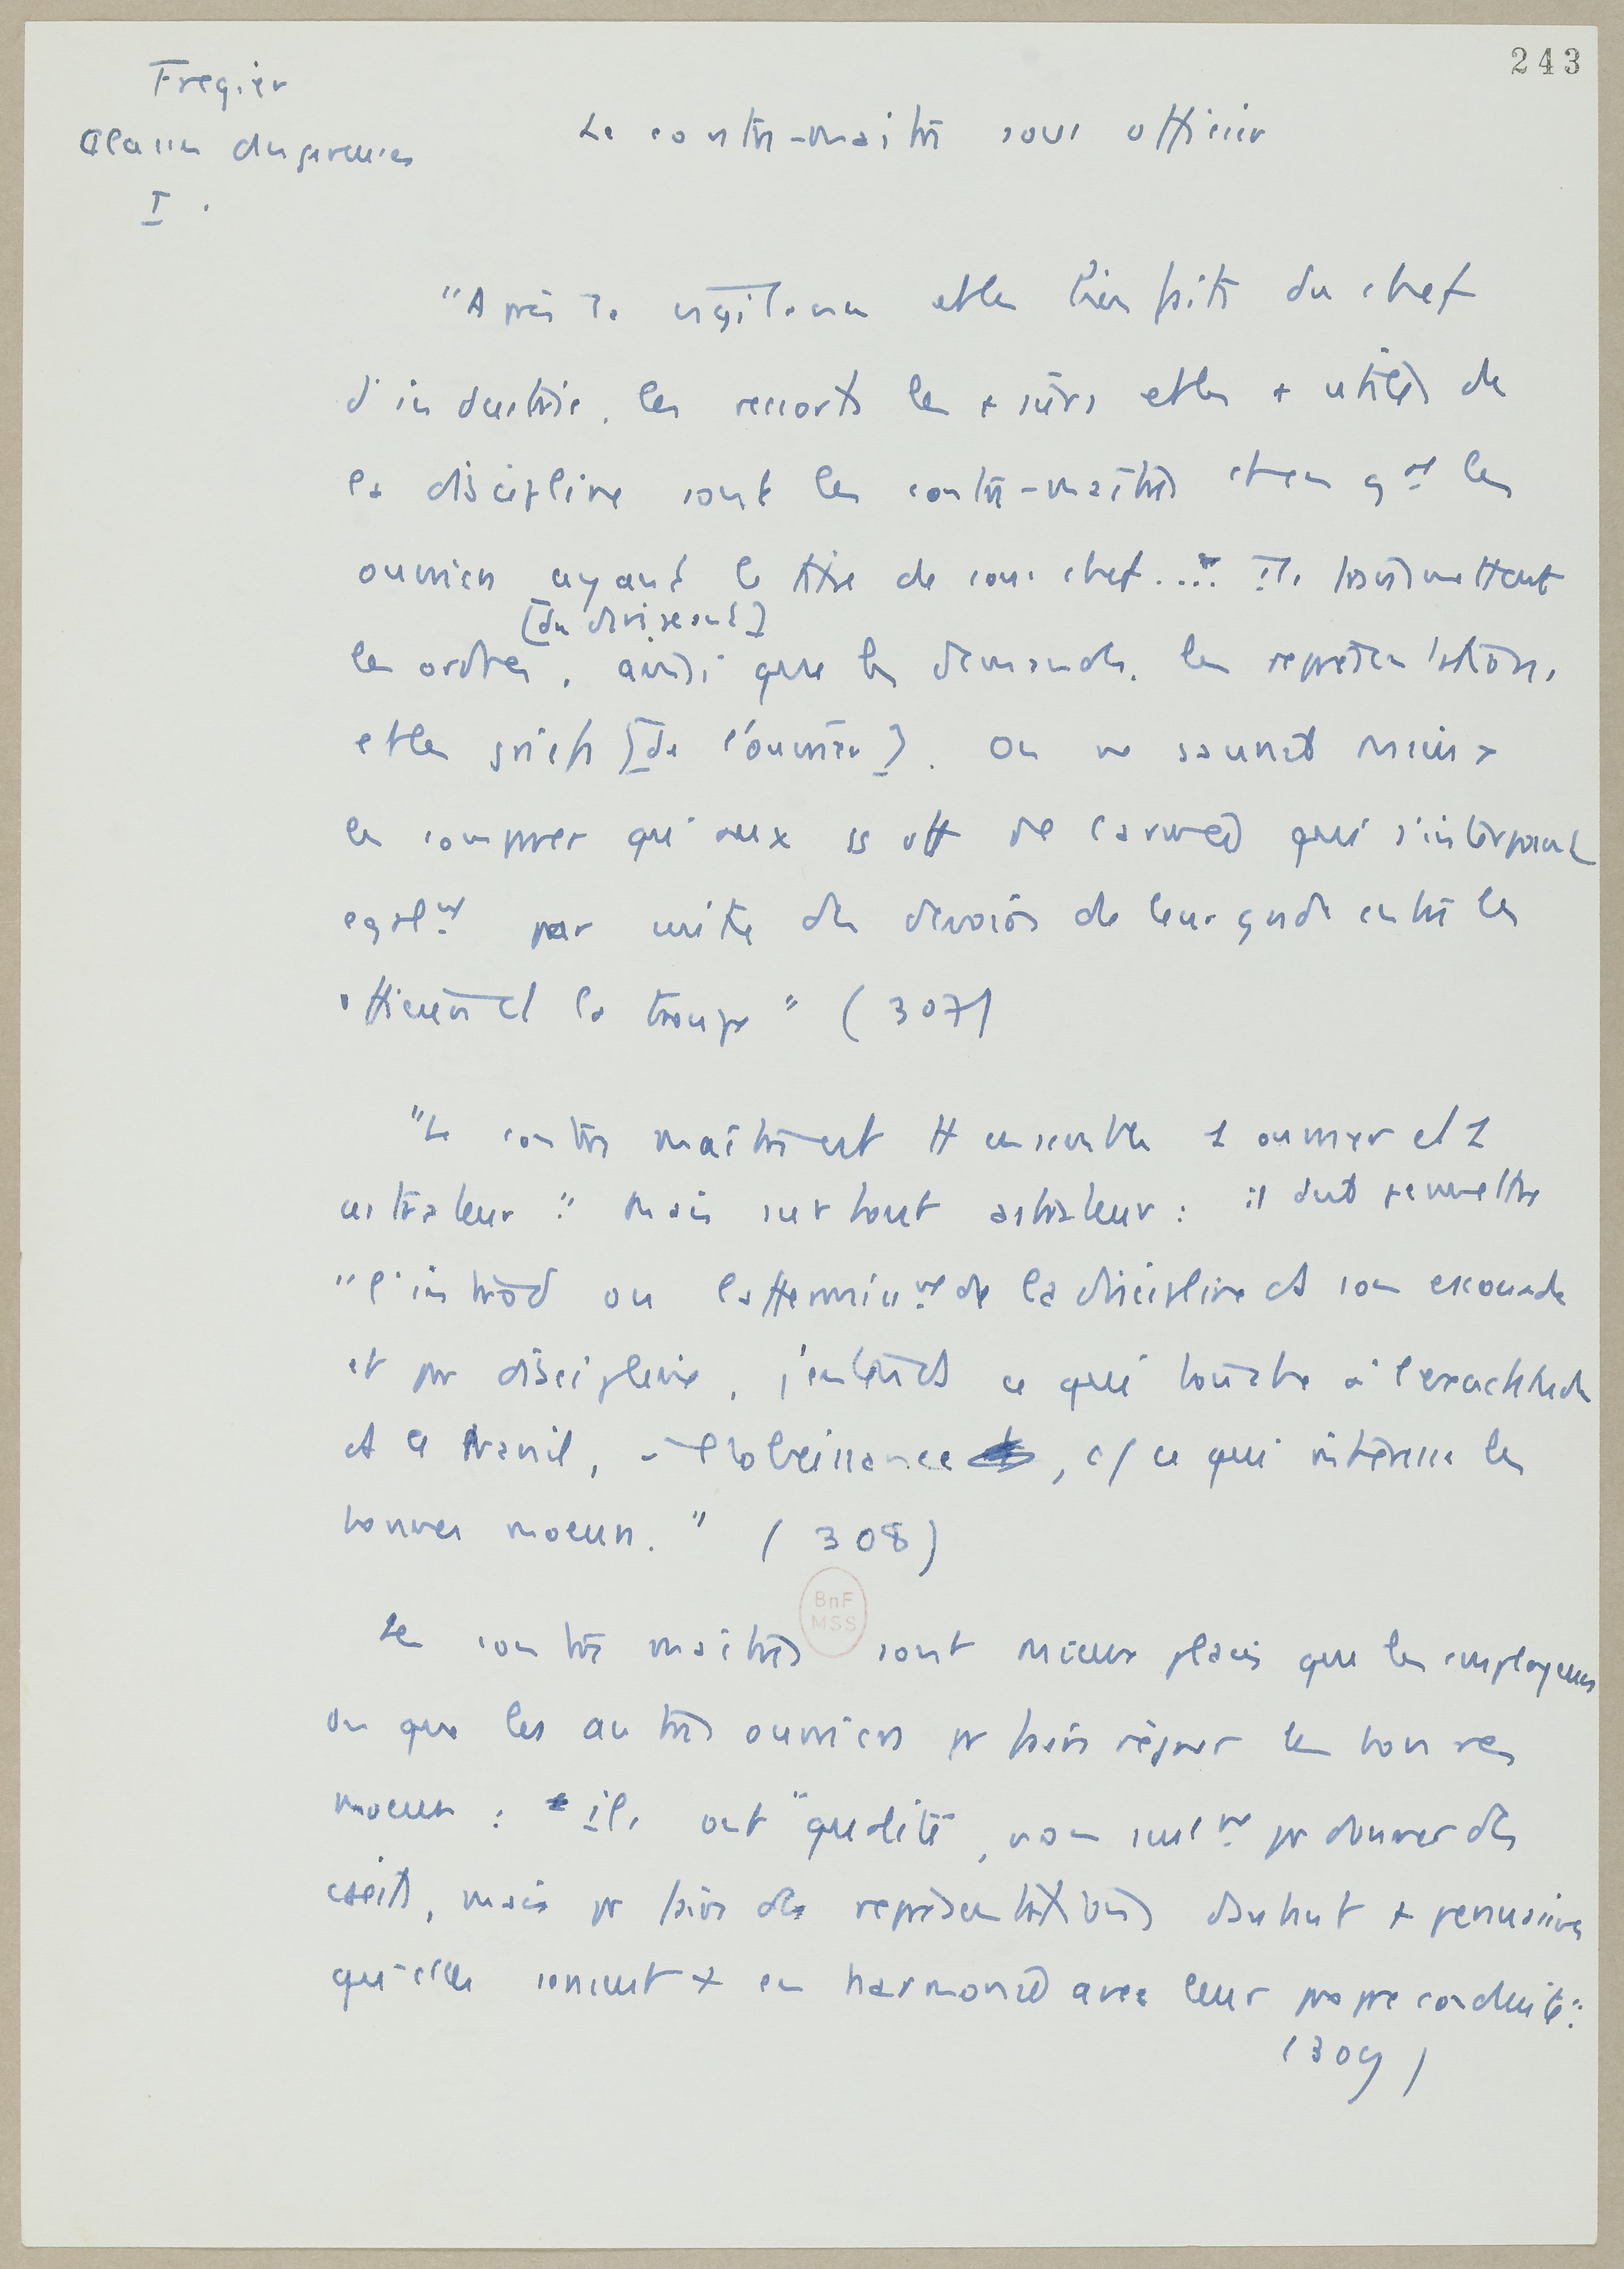 243
Fregier
Classes dangereuses
I.
Le contre-maître sous officier
"Après la vigilance et les bienfaits du chef
d'industrie, les ressorts les + sûrs et les + utiles de
la discipline sont les contre-maîtres et en gal les
ouvriers ayant le titre de sous chef.... Ils transmettent
[du dirigeant]
les ordres, ainsi que les demandes, les representations,
et les griefs [de l'ouvrier]. On ne saurait mieux
les comparer qu'aux ss off de l'armée qui s'interposent
egalmt par suite des devoirs de leur grade entre les
officiers et la troupe" (307)
"Le contre maître est tt ensemble 1 ouvrier et 1
". Mais surtout : il doit
" ou l'affermissmt de la discipline ds son escouade
et pr discipline, j'entends ce qui touche à l'exactitude
ds le travail, à l'obeissance, et ce qui interesse les
bonnes moeurs." (308)
BnF
MSS
Les contre maîtres sont mieux placés que les employeurs
ou que les autres ouvriers pr faire régner les bonnes
moeurs : ils ont "qualité, non seulmt pr donner des
, mais pr faire des représentations d'autant + persuasives
qu'elles seront + en harmonie avec leur propre conduite".
(309)